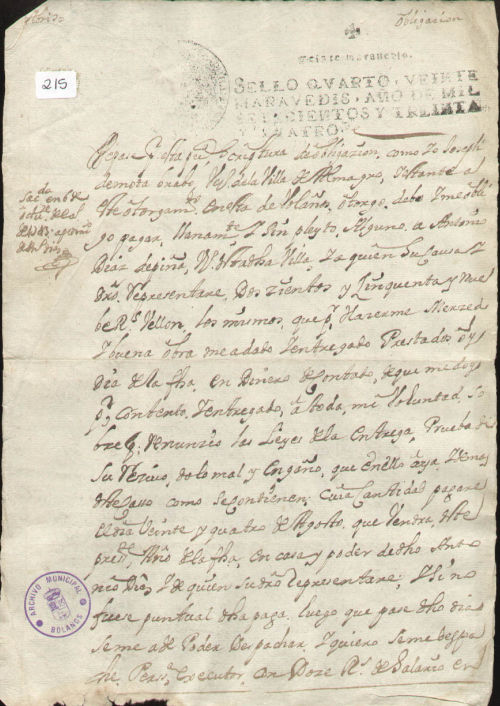 obligacion
215
Veinte maravedis.
SELLO QVARTO, VEINTE
MARAVEDIS, AÑO DE MIL
SETECIENTOS Y TREINTA
Y QUATRO.
Sepasse esta scriptura de obligacion, como Yo Joseph
de mota, Vº de la Villa de Almagro, estante al
otorgamto en esta de Bolaños, otorgo, debo Y me obli
go pagar, llanamte Y sin pleyto, Alguno, a Antonio
Diaz Vº de esta dha Villa, Y a quien su causa Y
dro, Representare, Doszientos y Zinquenta y nue
be Rs Vellon, los mismos, que pr Hazerme Merzed
Y buena obra me a dado Y entregado Prestados oy
Dia de la fha, en Dinero de Contado, de que me doy
pr contento, Y entregado, a toda, mi Voluntad, so
bre q. Renunzio las Leyes de la Entrega, Prueba de
su Rezivo, dolo mal y engaño, que en ello aya, Y demas
deste caso como se contienen, Cuia Cantidad pagare
el dia Veinte y quatro de Agosto, que Vendra, deste
preste Año de la fha, en casa y poder de dho Anto
nio Diaz, Y de quien su dro representare, Y si no
fuese puntual dha paga, luego que pase dho dia
se me a de Poder Despachar, Y quiero se me despa
che, Persa executor, con Doze Rs de Salario en
ARCHIVO MUNICIPAL
BOLAÑOS